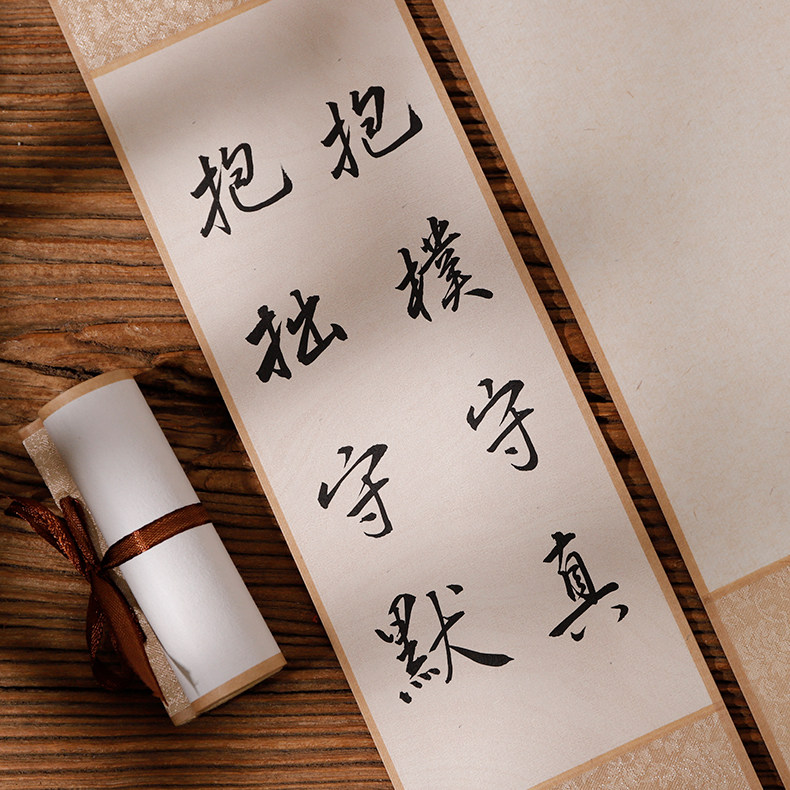 抱樸守真
抱拙守默